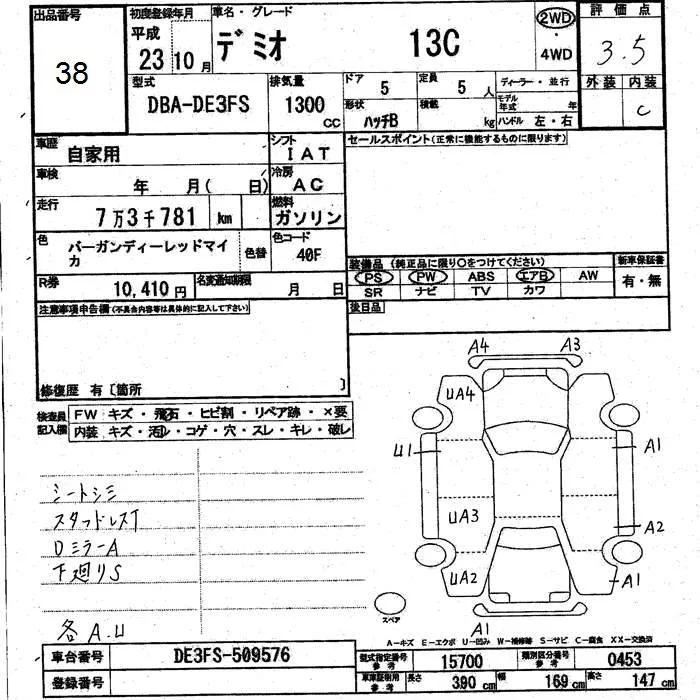 出品番号
38
初度登録年月
平成
23年10月
車名・グレード
デミオ 13C
2WD
・
4WD
評価点
3.5
型式
DBA-DE3FS
排気量
1300
CC
ドア
5
定員
5人
ディーラー・並行
モデル年式 年
形状
ハッチB
積載
kg
ハンドル 左・右
外装 内装
C
車歴
自家用
シフト
IAT
車検
年 月( 日)
冷房
AC
走行
7万3千781 km
燃料
ガソリン
色
バーガンディーレッドマイカ
色替
色コード
40F
R券
10,410円
名変通知期限
月 日
セールスポイント(正常に機能するものに限ります)
装備品(純正品に限り○をつけてください)
PS PW ABS エアB AW
SR ナビ TV カワ
新車保証書
有・無
後日品
注意事項申告欄(不具合内容等は具体的に記入して下さい)
修復歴 有〔箇所 〕
検査員記入欄
FW キズ・飛石・ヒビ割・リペア跡・×要
内装 キズ・汚レ・コゲ・穴・スレ・キレ・破レ
シートシミ
スタッドレスT
Dミラー A
下廻りS
各A.U
A4 A3
UA4
U1 A1
UA3 A2
UA2 A1
A1
スペア
A-キズ E-エクボ U-凹み W-補修跡 S-サビ C-腐食 XX-交換済
車台番号
DE3FS-509576
登録番号
型式指定番号
参考
15700
類別区分番号
参考
0453
車庫証明用
参考
長さ 390 cm 幅 169 cm 高さ 147 cm